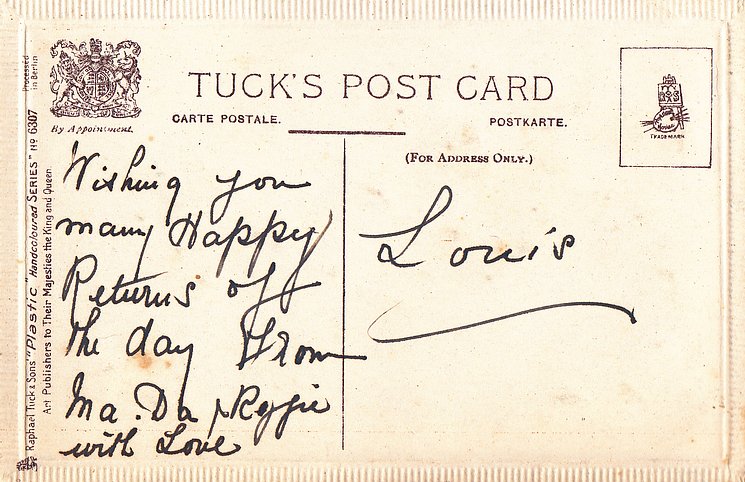 TUCK'S POST CARD
CARTE POSTALE.
POSTKARTE.
By Appointment.
(FOR ADDRESS ONLY.)
TRADE MARK
Processed
in Berlin
Raphael Tuck & Sons' "Plastic" Handcoloured SERIES" No 6307
Art Publishers to Their Majesties the King and Queen
Wishing you
many Happy
Returns of
the day From
Ma. Da & Reggie
with Love
Louis